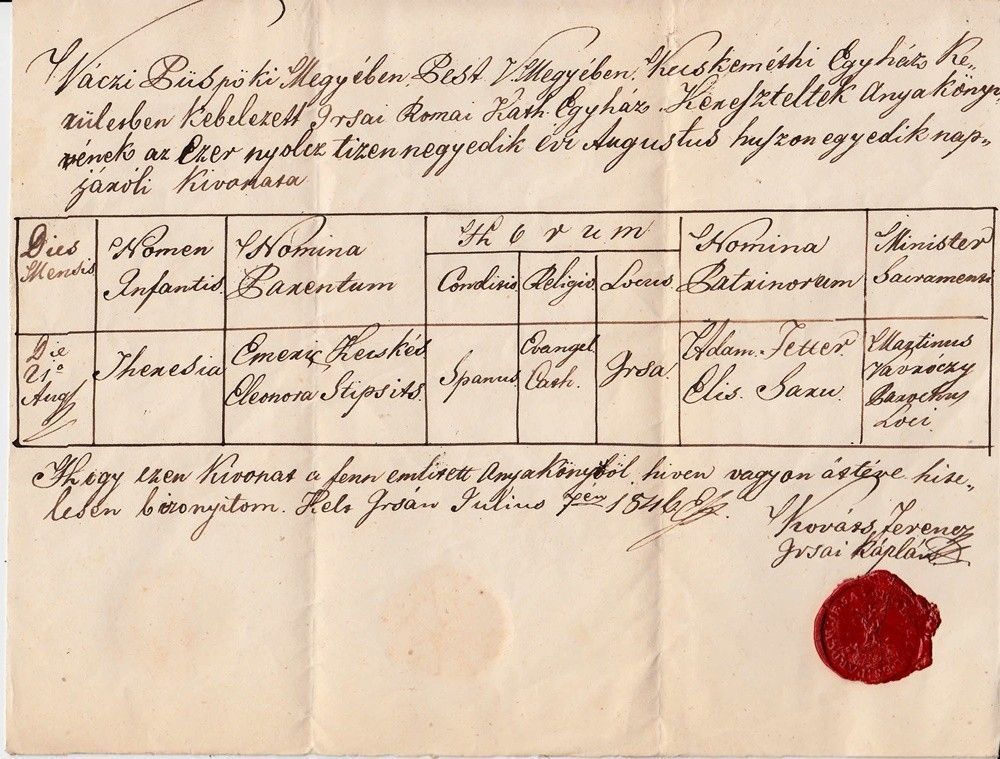 Váczi Püspöki Megyében Pest V. Megyében, Kecskeméthi Egyház Ke-
rületben kebelezett Irsai Romai Kath. Egyház Kereszteltek Anyaköny-
vének az Ezer nyolcz tizennegyedik évi Augustus huszonegyedik nap-
járóli Kivonata
Dies Mensis
Nomen Infantis
Nomina Parentum
Horum
Conditio
Religio
Locus
Nomina Patrinorum
Minister Sacramenti
Die 21o Aug
Theresia
Emeric Kecskés
Eleonora Stipsits.
Spanus
Evangel.
Cath.
Irsa.
Adam. Fetter
Elis. Saxu.
Martinus
Vavróczy
Parochus
Loci.
Hogy ezen Kivonat a fenn emlitett Anyakönyből hiven vagyon áttéve hite-
lesen bizonyitom. Kelt Irsán Julius 7en 1846
Kováts Ferencz
Irsai Káplán